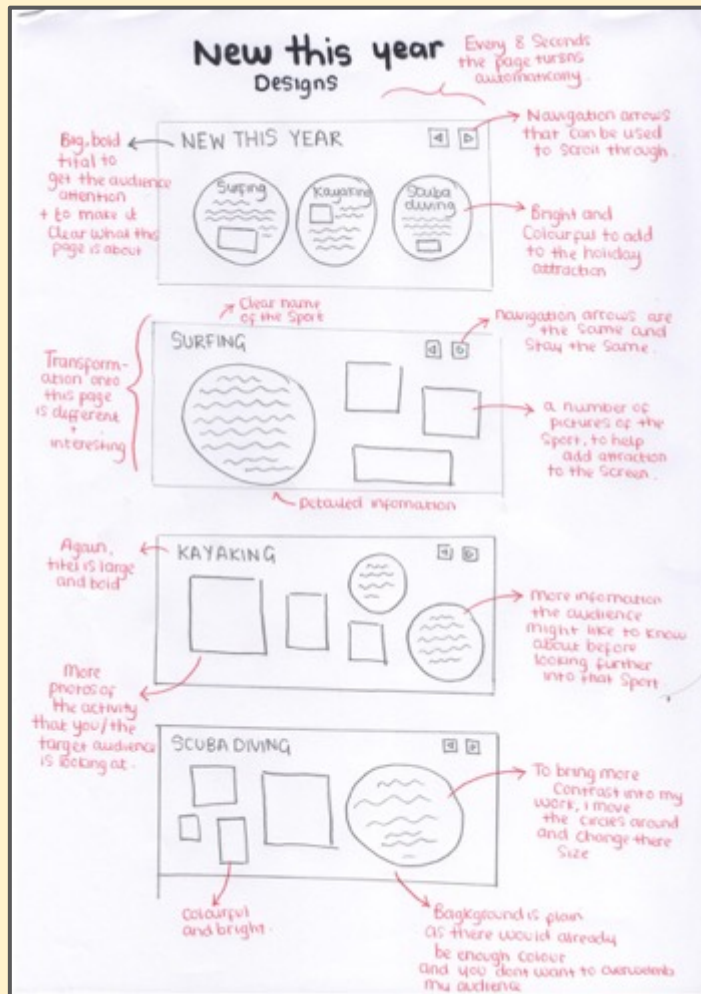 New this year
Designs
Every 8 Seconds
the page tursns
automatically.
Big, bold
tital to
get the audience
attention
+ to make it
Clear what this
page is about
NEW THIS YEAR
Navigation arrows
that can be used
to scroll through.
Surfing
Kayaking
Scuba
diving
Bright and
Colourful to add
to the holiday
attraction
Clear name
of the Sport
SURFING
Navigation arrows are
the same and
Stay the same.
Transform-
ation onto
this page
is different
+
interesting
a number of
pictures of the
Sport, to help
add attraction
to the screen.
Detailed infomation
Again,
titel is large
and bold
KAYAKING
More infomation
the audience
might like to know
about before
looking further
into that Sport
More
photos of
the activity
that you/the
target audience
is looking at.
SCUBA DIVING
To bring more
Contrast into my
work, i move
the circles around
and change there
Size
Colourful
and bright.
Background is plain
as there would already
be enough colour
and you dont want to
my audience